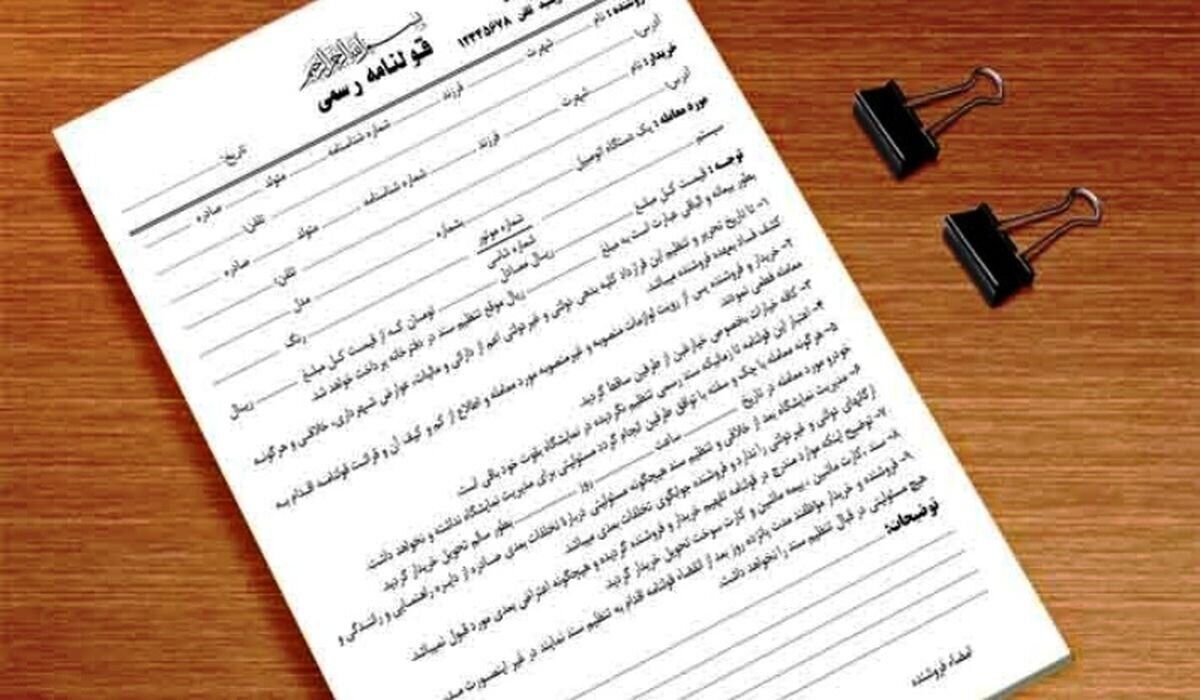 بسم الله الرحمن الرحیم
قولنامه رسمی
تلفن ۱۲۳۴۵۶۷۸
تاریخ:
فروشنده: نام شهرت فرزند شماره شناسنامه متولد صادره
آدرس: تلفن:
خریدار: نام شهرت فرزند شماره شناسنامه متولد صادره
آدرس: تلفن:
مورد معامله: یک دستگاه اتومبیل بشماره مدل
سیستم شماره موتور رنگ
شماره شاسی
توجه: قیمت کل مبلغ ریال معادل تومان که از قیمت کل مبلغ ریال
بطور بیعانه و الباقی عبارت است به مبلغ ریال موقع تنظیم سند در دفترخانه پرداخت خواهد شد.
۱- تا تاریخ تحریر و تنظیم این قرارداد کلیه بدهی دولتی و غیردولتی اعم از دارائی و مالیات، عوارض شهرداری، خلافی و هرگونه
کشف فساد بعهده فروشنده میباشد.
۲- خریدار و فروشنده پس از رویت لوازمات منصوبه و غیرمنصوبه مورد معامله و اطلاع از کم و کیف آن و قرائت قولنامه اقدام به
معامله قطعی نمودند.
۳- کافه خیارات بخصوص خیار غبن از طرفین ساقط گردید.
۴- اعتبار این قولنامه تا زمانیکه سند رسمی تنظیم نگردیده در نمایشگاه بقوت خود باقی است.
۵- هرگونه معامله با چک و سفته با توافق طرفین انجام گردد مسئولیتی برای مدیریت نمایشگاه نداشته و نخواهد داشت.
خودرو مورد معامله در تاریخ ساعت روز بطور سالم تحویل خریدار گردید.
۶- مدیریت نمایشگاه بعد از خلافی و تنظیم سند هیچگونه مسئولیتی درباره تخلفات بعدی صادره از دایره راهنمایی و رانندگی و
ارگانهای دولتی و غیردولتی را ندارد و فروشنده جوابگوی تخلفات بعدی میباشد.
۷- توضیح اینکه موارد مندرج در قولنامه تفهیم خریدار و فروشنده گردیده و هیچگونه اعتراض بعدی مورد قبول نمیباشد.
۸- سند، کارت ماشین، بیمه ماشین و کارت سوخت تحویل خریدار گردید.
۹- فروشنده و خریدار مؤظفند مدت پانزده روز بعد از انقضاء قولنامه اقدام به تنظیم سند نمایند در غیر اینصورت
هیچ مسئولیتی در قبال تنظیم سند را نخواهد داشت.
توضیحات:
امضاء فروشنده